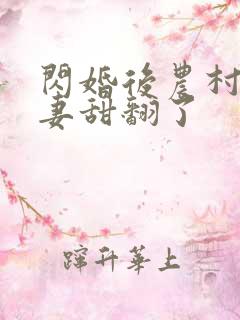 閃婚後農村
妻甜翻了
蹿升華上